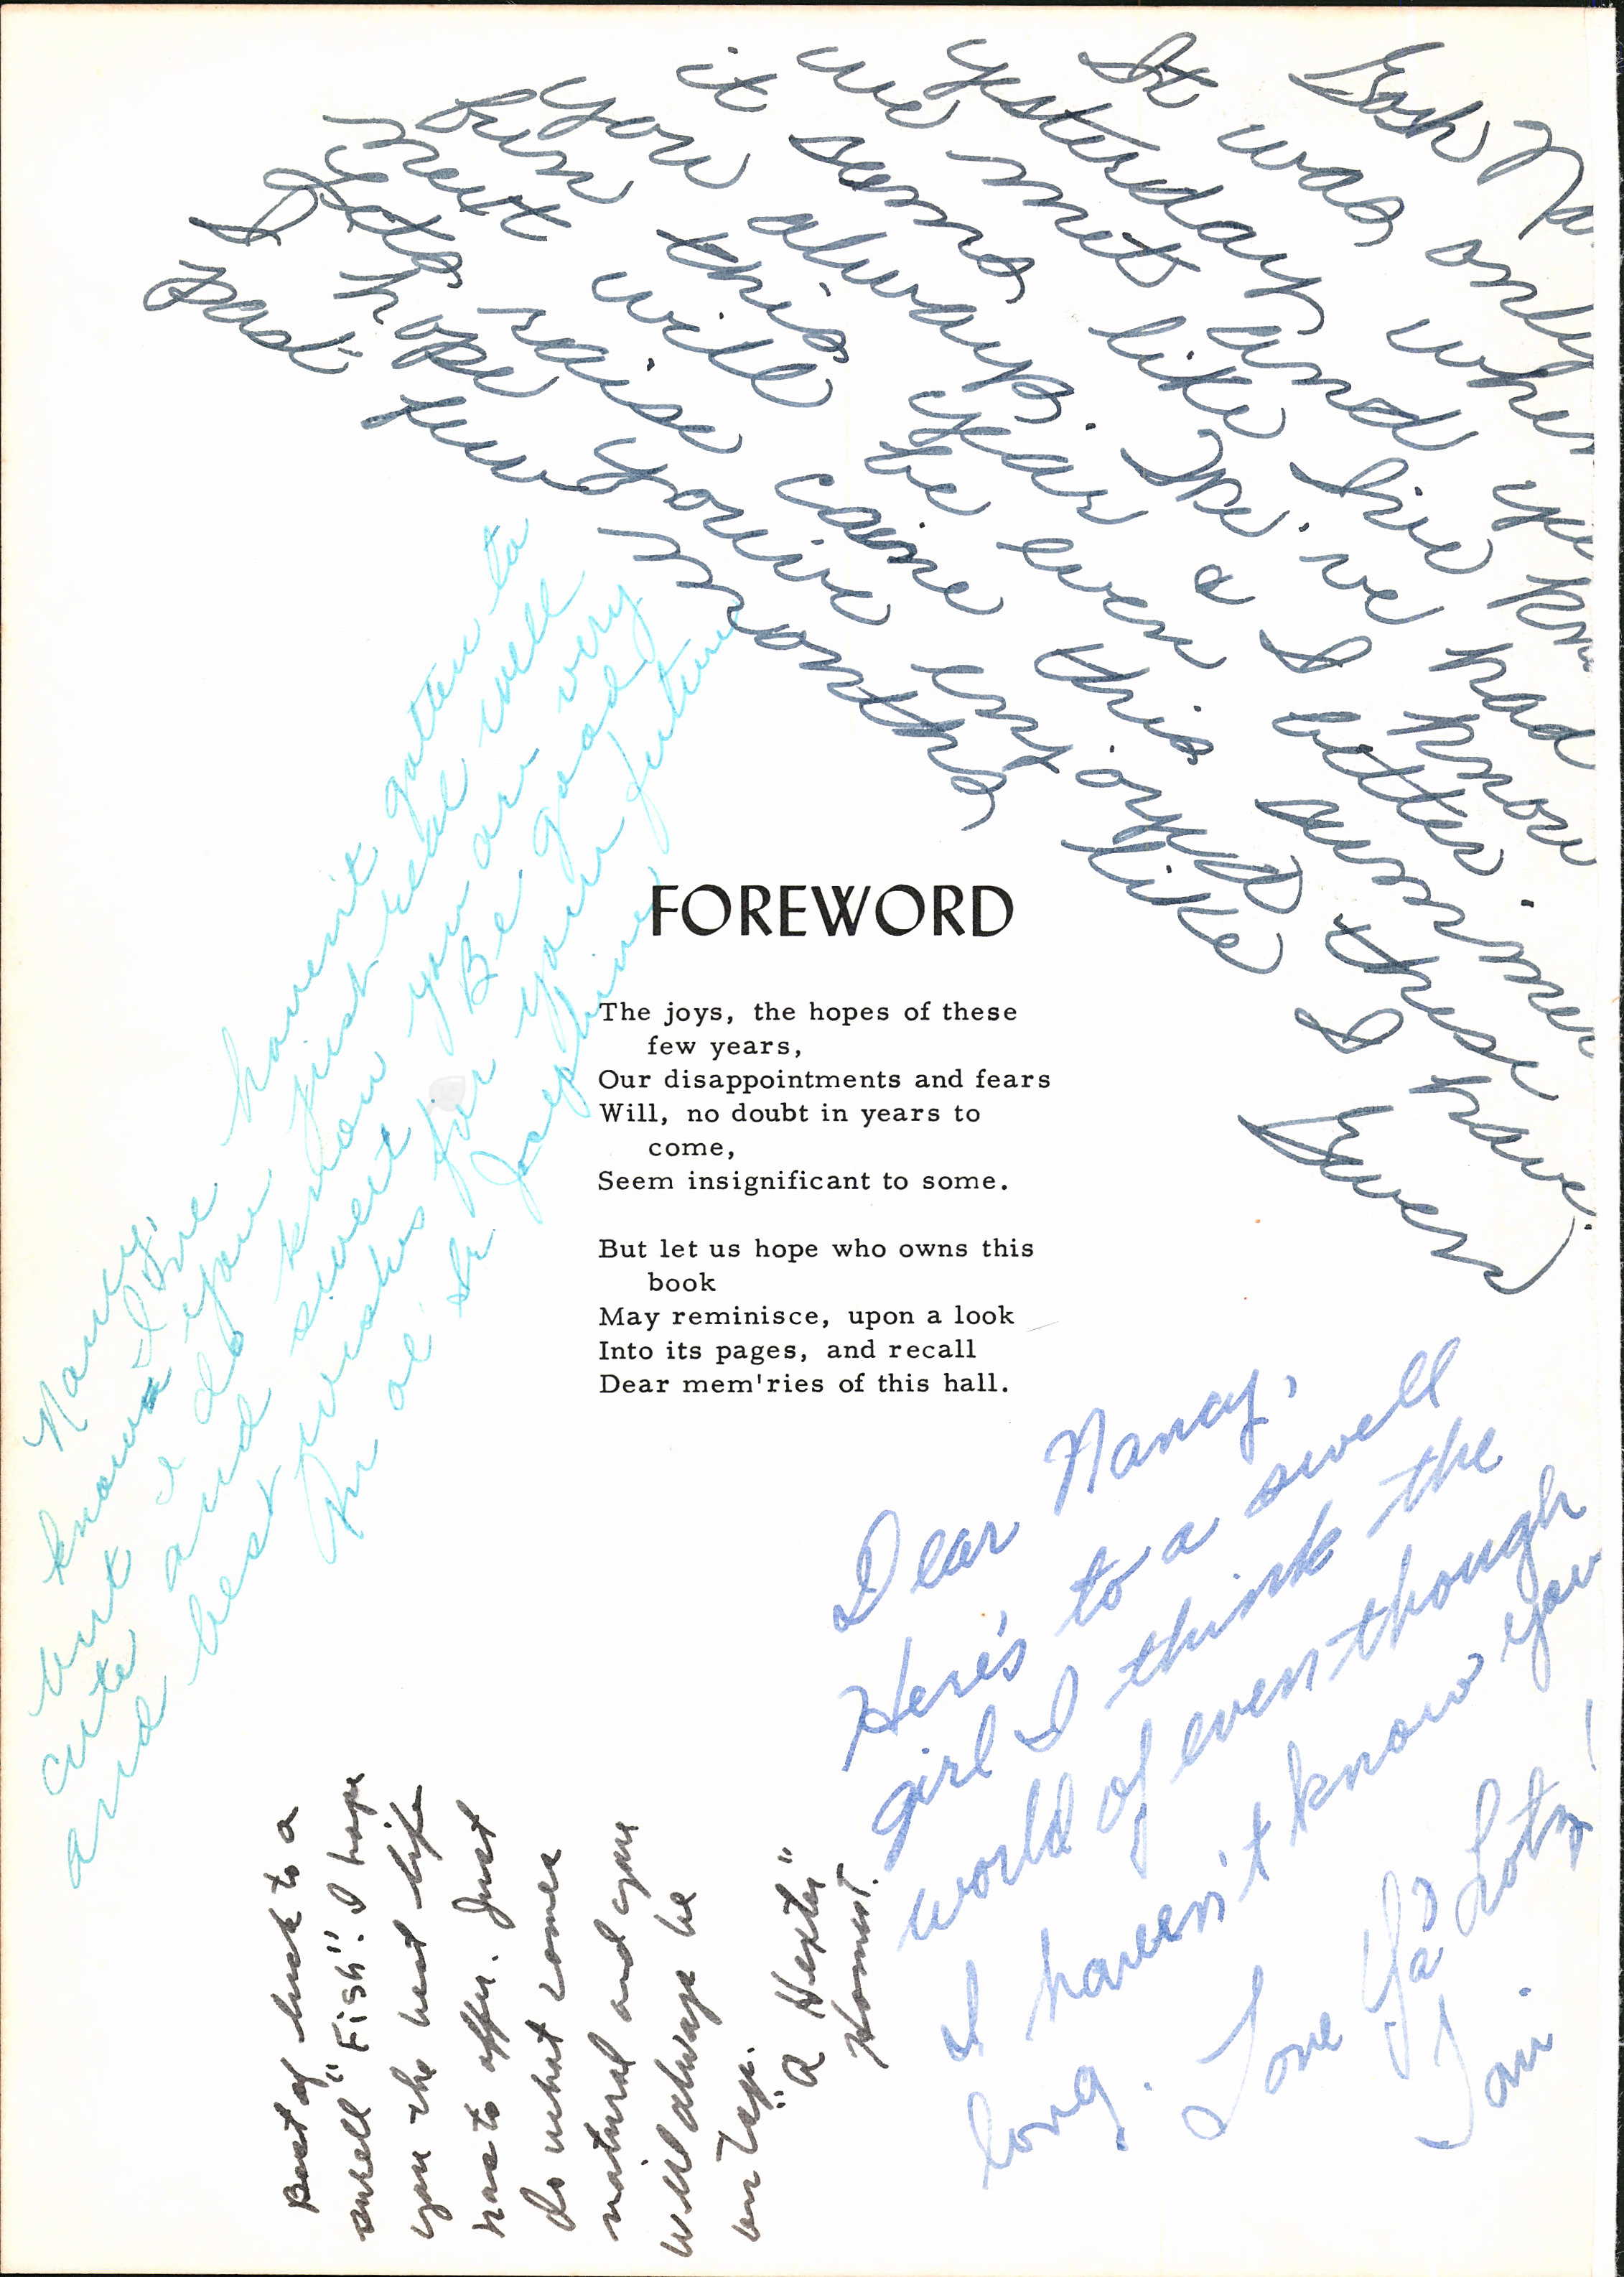 Gosh Na
It was only
yesterday when
we met and we
it seems like I've kn
you always. We've had
fun this year & I know
next will be even better.
Gotta raise caine this summer
I hope you've enjoyed these
past few months like I have.
Gwen
Nancy,
I've haven't gotten to
know you just real well
but I do know you are very
cute and sweet. Be good
and best wishes for your future
An ol' Sr.
Josephine
FOREWORD
The joys, the hopes of these
few years,
Our disappointments and fears
Will, no doubt in years to
come,
Seem insignificant to some.
But let us hope who owns this
book
May reminisce, upon a look
Into its pages, and recall
Dear mem'ries of this hall.
Best of luck to a
swell "Fish". I hope
you the best life
has to offer. Just
do what comes
natural and you
will always be
on top.
"A Hexter"
Dear Nancy,
Here's to a swell
girl I think the
world of even though
I haven't know you
long.
Love Ya' Lotz!
Jan.